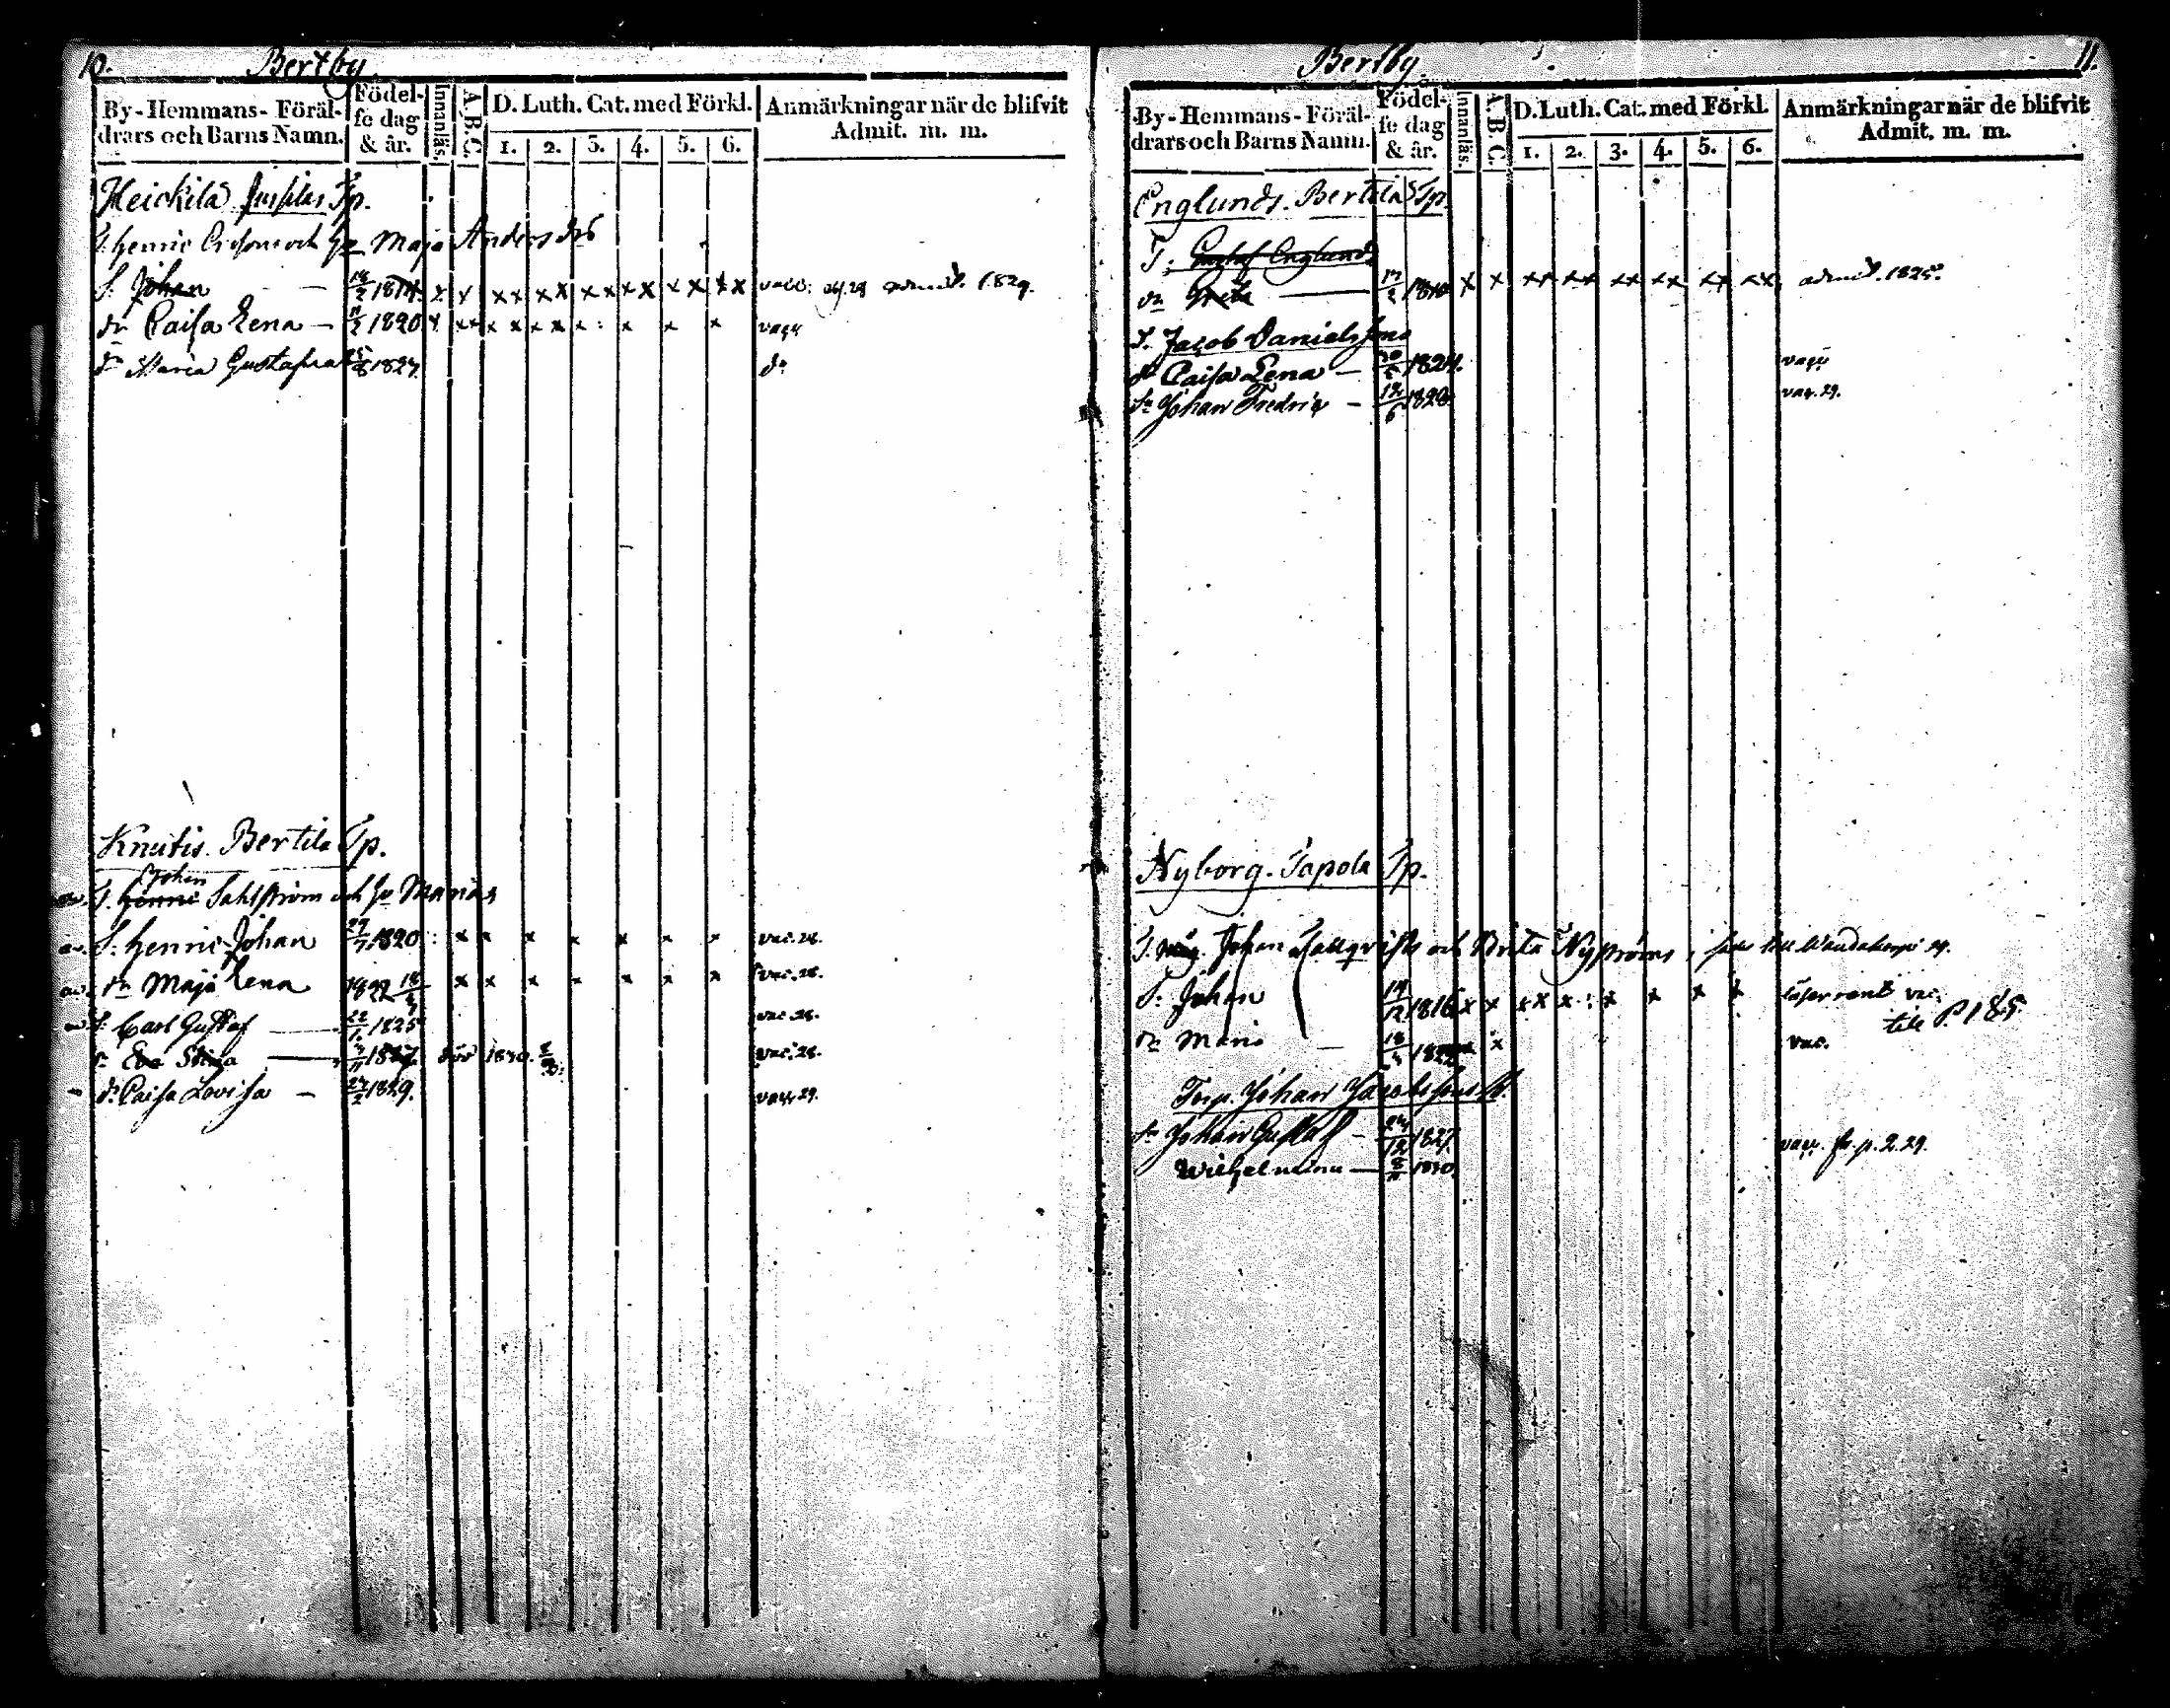 10. Bertby
By-Hemmans-Föräldrars och Barns Namn. Födelse dag & år. Innanläs. A.B.C. D. Luth. Cat. med Förkl. 1. 2. 3. 4. 5. 6. Anmärkningar när de blifvit Admit. m. m.
Heickilä Tp.
T. Henric och Hu Maja Anders dr
S: Johan — 1814 x x xx xx xx xx xx xx admit. 1829.
Dr Caisa Lena — 1820 x xx x x x x x : x x x vacc
dr Maria Gustafva 1827 do
Knutis. Bertila Tp.
Johan
T. Henric Sahlström och Hu Maria
S: Henric Johan 27/7 1820 : x x x x x x x vac. 28.
Dr Maja Lena 1822 18/4 x x x x x x x vac. 28.
S: Carl Gustaf — 22/1 1825 vac. 28.
Dr Eva Stina — 1827 död 1830 vac. 28.
Dr Caisa Lovisa — 24/2 1829. vacc 29.
Bertby 11.
By-Hemmans-Föräldrars och Barns Namn. Födelse dag & år. Innanläs. A.B.C. D. Luth. Cat. med Förkl. 1. 2. 3. 4. 5. 6. Anmärkningar när de blifvit Admit. m. m.
Englunds. Bertila Tp.
T: Gustaf Englund
Dr Greta — 17/2 1810 x x xx xx xx xx xx xx admit. 1825.
T. Jacob Danielssons
dr Caisa Lena — 1824. vacc
Sn Johan Fredric — 12/6 1828 vac. 29.
Nyborg. Tapola Tp.
T. Johan Hallqvists och Brita Nyströms
S: Johan 14/12 1816 x x xx x : x x x x läser rent vac. till P. 185
Dr Maria — 18/4 1822 x vac.
Torp. Johan Jacobssons
Sn Johan Gustaf — 24/12 1827 vacc. fr. p. 2. 29.
Wilhelmina — 1830